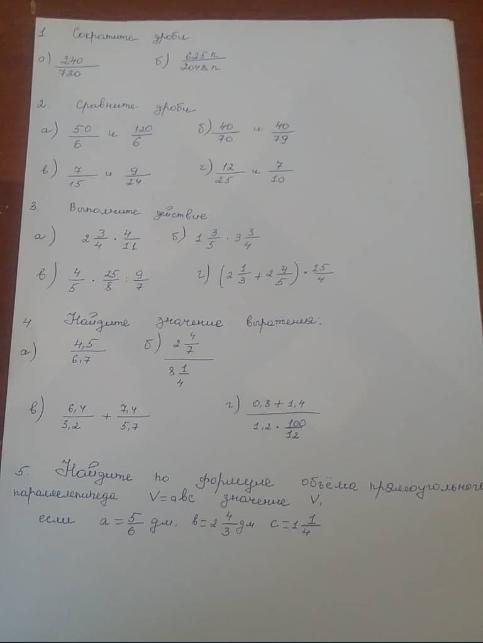 1 Сократите дроби
а) 240/720 б) 625n/2048n
2. Сравните дроби
а) 50/6 и 120/6 б) 40/70 и 40/79
в) 7/15 и 9/24 г) 12/25 и 7/10
3. Выполните действие
а) 2 3/4 · 4/11 б) 1 3/5 · 3 3/4
в) 4/5 · 25/8 : 9/7 г) (2 1/3 + 2 4/5) · 25/4
4 Найдите значение выражения:
а) 4,5/6,7 б) 2 4/7 / 8 1/4
в) 6,4/3,2 + 7,4/5,7 г) 0,8 + 1,4 / 1,2 · 100/12
5. Найдите по формуле объёма прямоугольного
параллелепипеда V=авс значение V,
если а = 5/6 дм. в=2 4/3 дм с=1 1/4